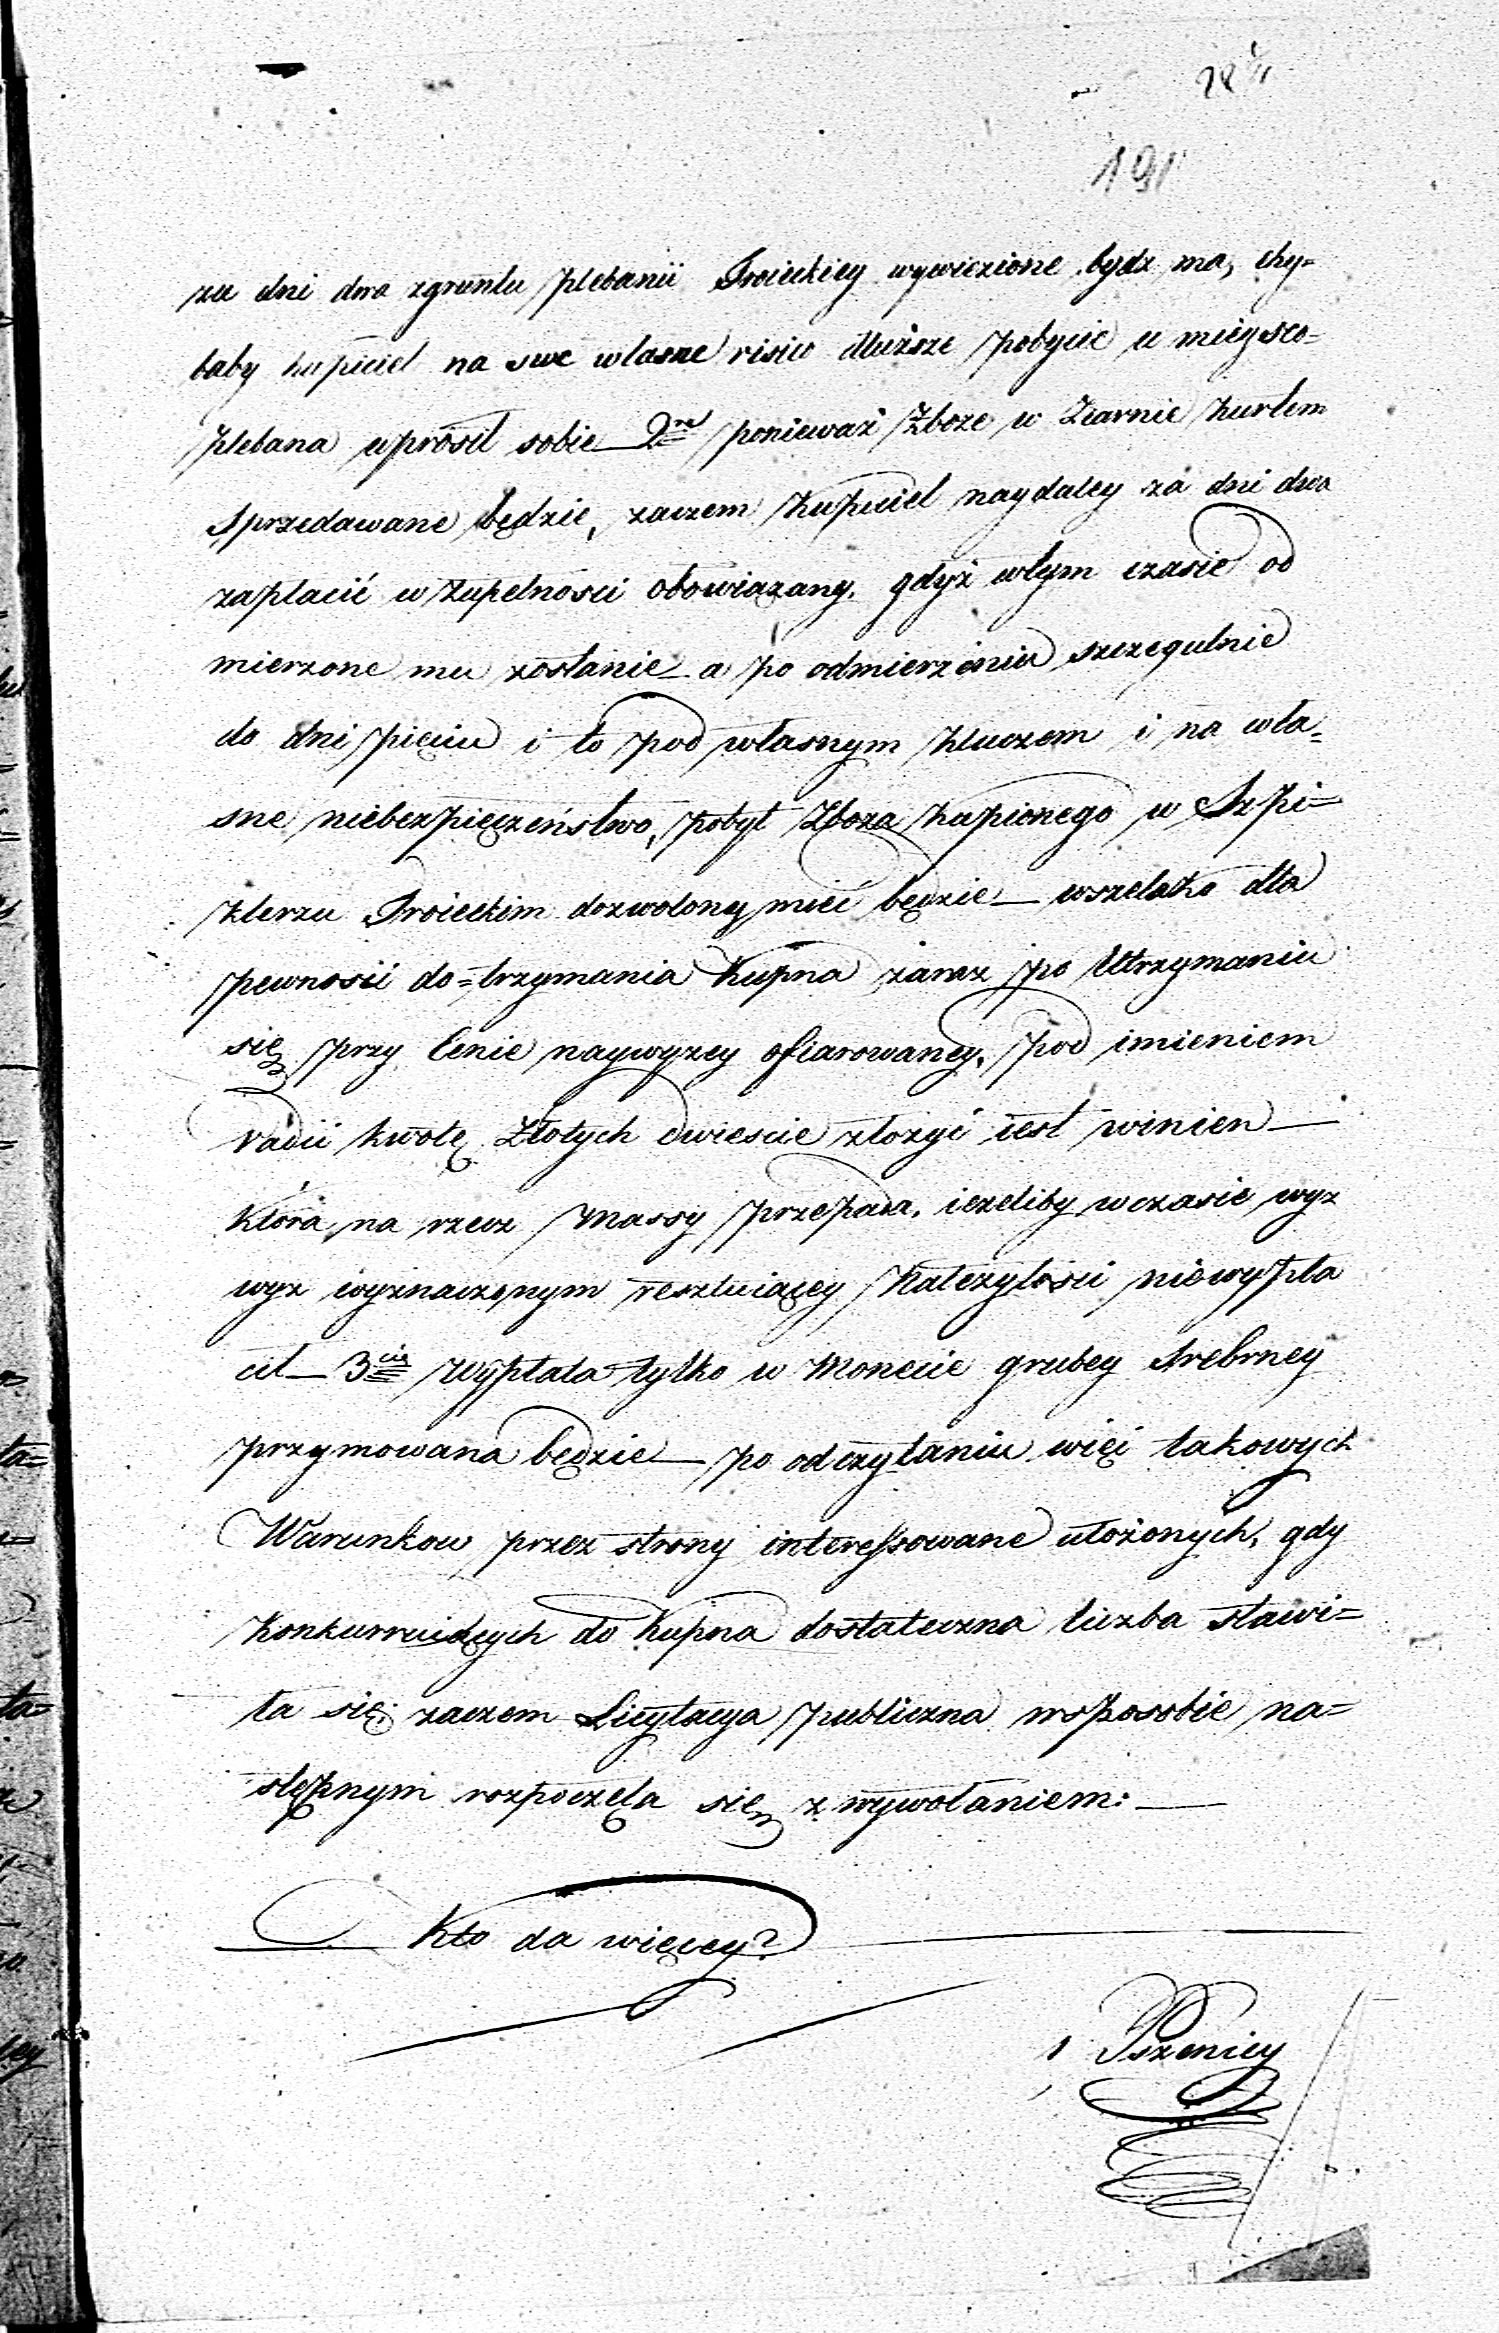 191
za dni dwa zgruntu plebanii Troickiey wywiezione bydz ma, chy=
baby kupiciel na swe własne risico dłuższe pobycie u mieysco=
plebana uprosił sobie — 2re ponieważ Zboże w Ziarnie kurtem
sprzedawane będzie, zaczem kupiciel naydaley za dni dwa
zapłacić w zupełności obowiązany, gdyż wtym czasie od
mierzone mu zostanie — a po odmierzeniu szczegulnie
do dni pięciu i to pod własnym kluczem i na wła=
sne niebezpieczeństwo, pobyt Zboża kupionego w Szpi=
klerzu Troickim dozwolony mieć będzie — wszelako dla
pewności do=trzymania kupna zaraz po Utrzymaniu
się przy Cenie naywyzey ofiarowaney, pod imieniem
vadii kwotę Złotych dwieście złożyć iest winien —
która na rzecz Massy przepada, ieżeliby wczasie wyz
wyz wyznaczonym resztuiącey Należytości niewypła
cił — 3cie Wypłata tylko w Monecie grubey srebrney
przymowana będzie — po odczytaniu więc takowych
Warunkow przez strony interessowane ułożonych, gdy
konkurruiących do kupna dostateczna liczba stawi=
ła się zaczem Licytacya publiczna wsposobie na=
stępnym rozpoczęła się z wywołaniem: —
Kto da więcey?
1 Pszenicy